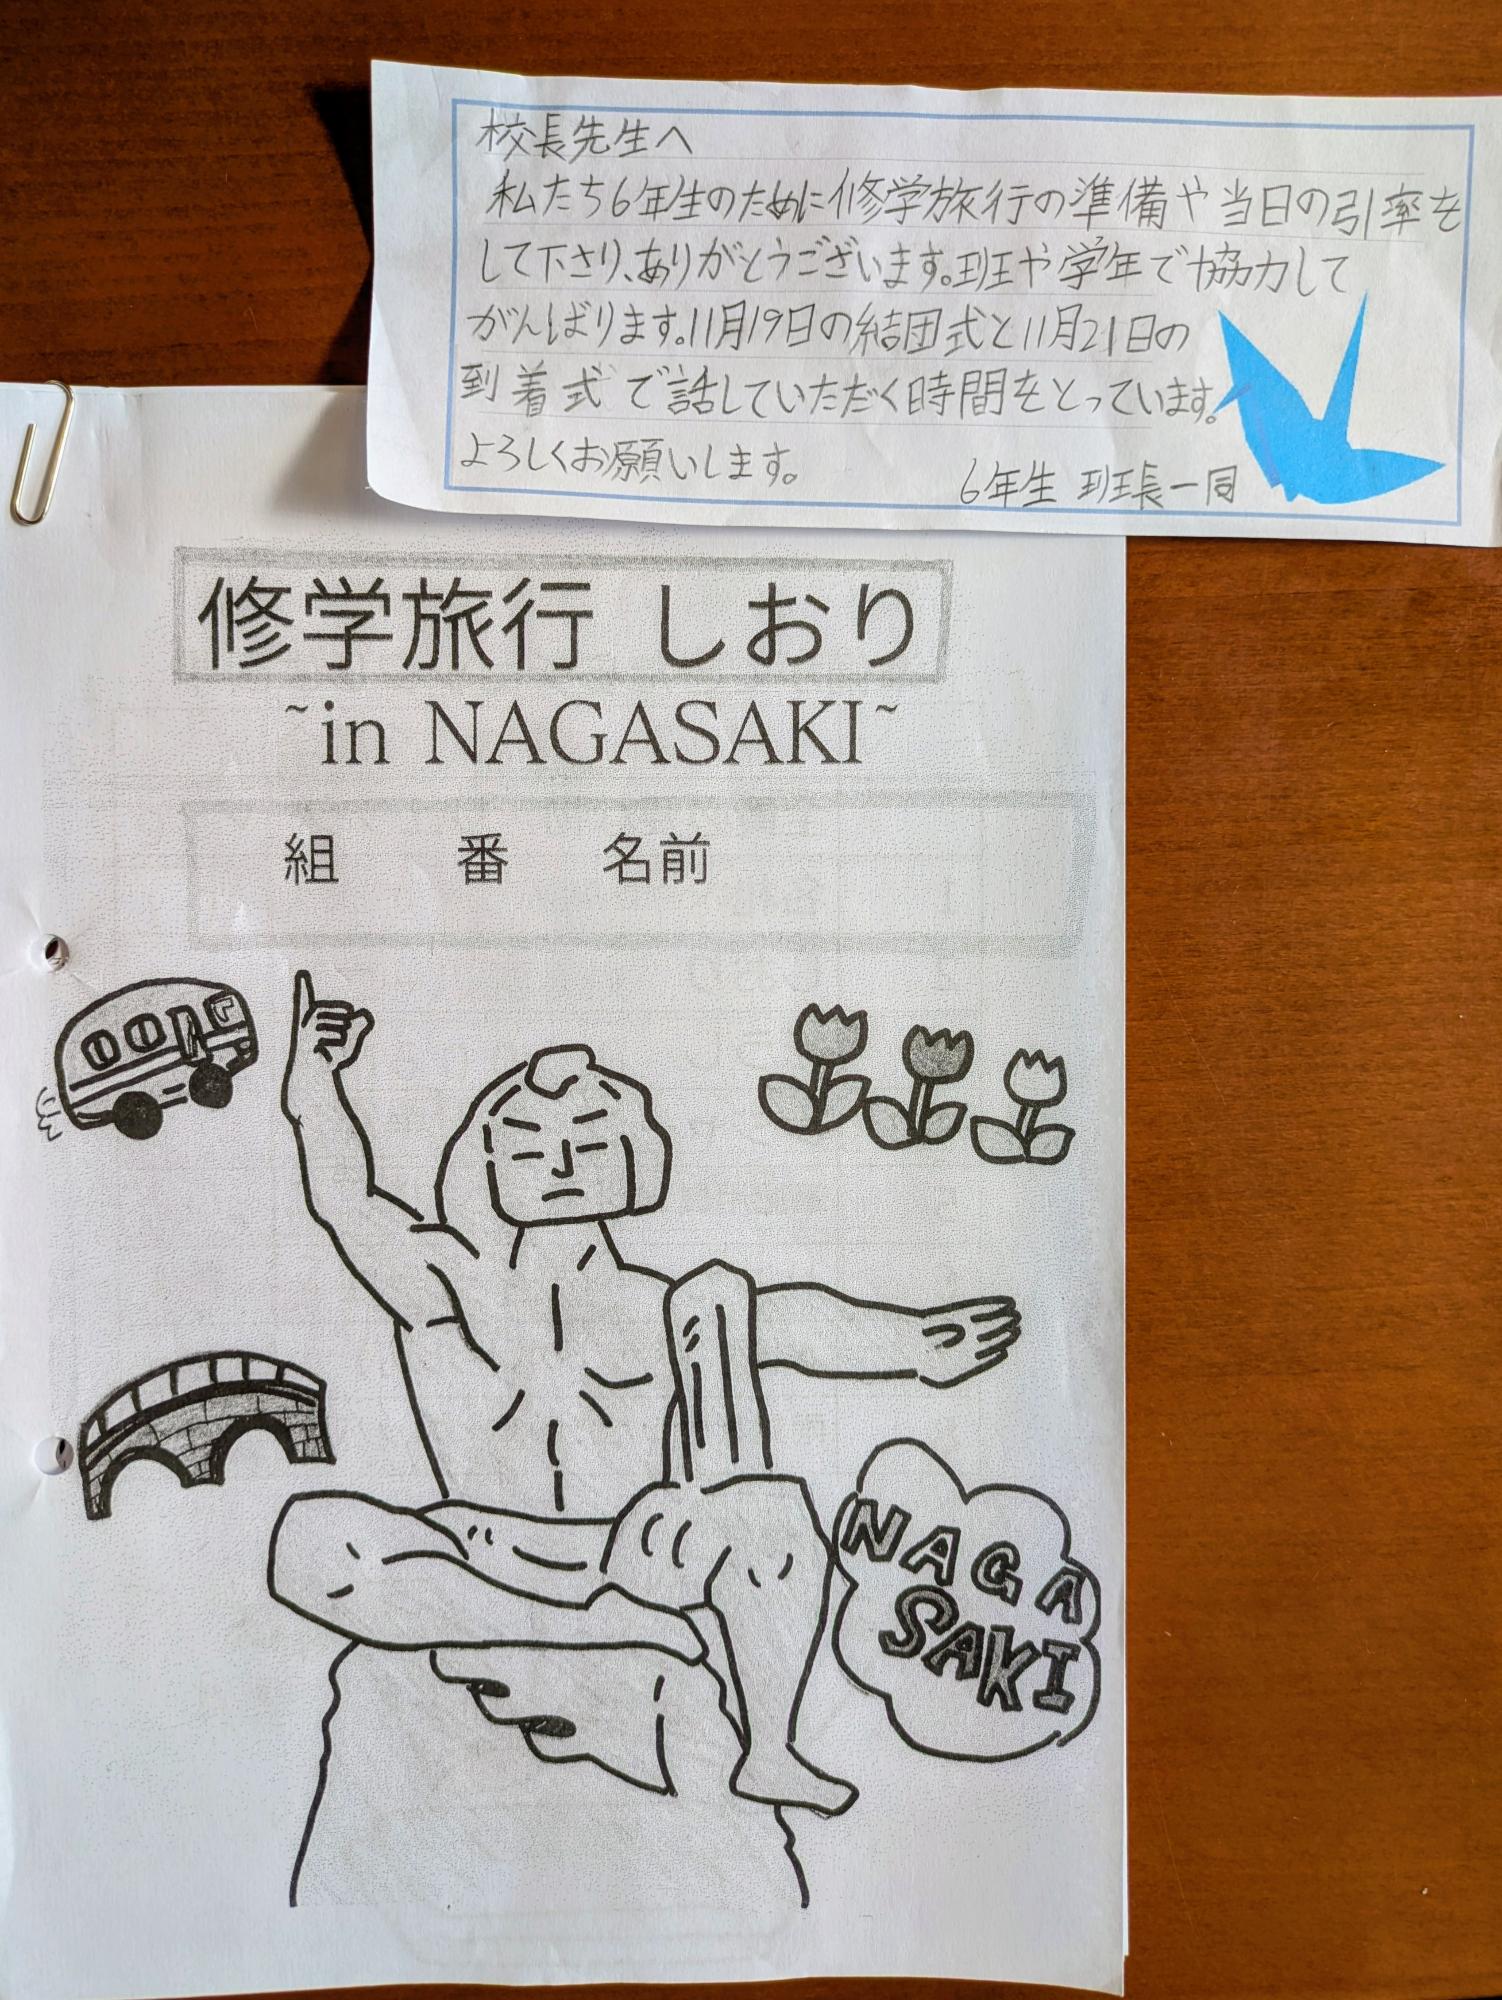 校長先生へ
私たち6年生のために修学旅行の準備や当日の引率を
して下さり、ありがとうございます。班や学年で協力して
がんばります。11月19日の結団式と11月21日の
到着式で話していただく時間をとっています。
よろしくお願いします。
6年生 班長一同
修学旅行 しおり
~in NAGASAKI~
組 番 名前
NAGA
SAKI